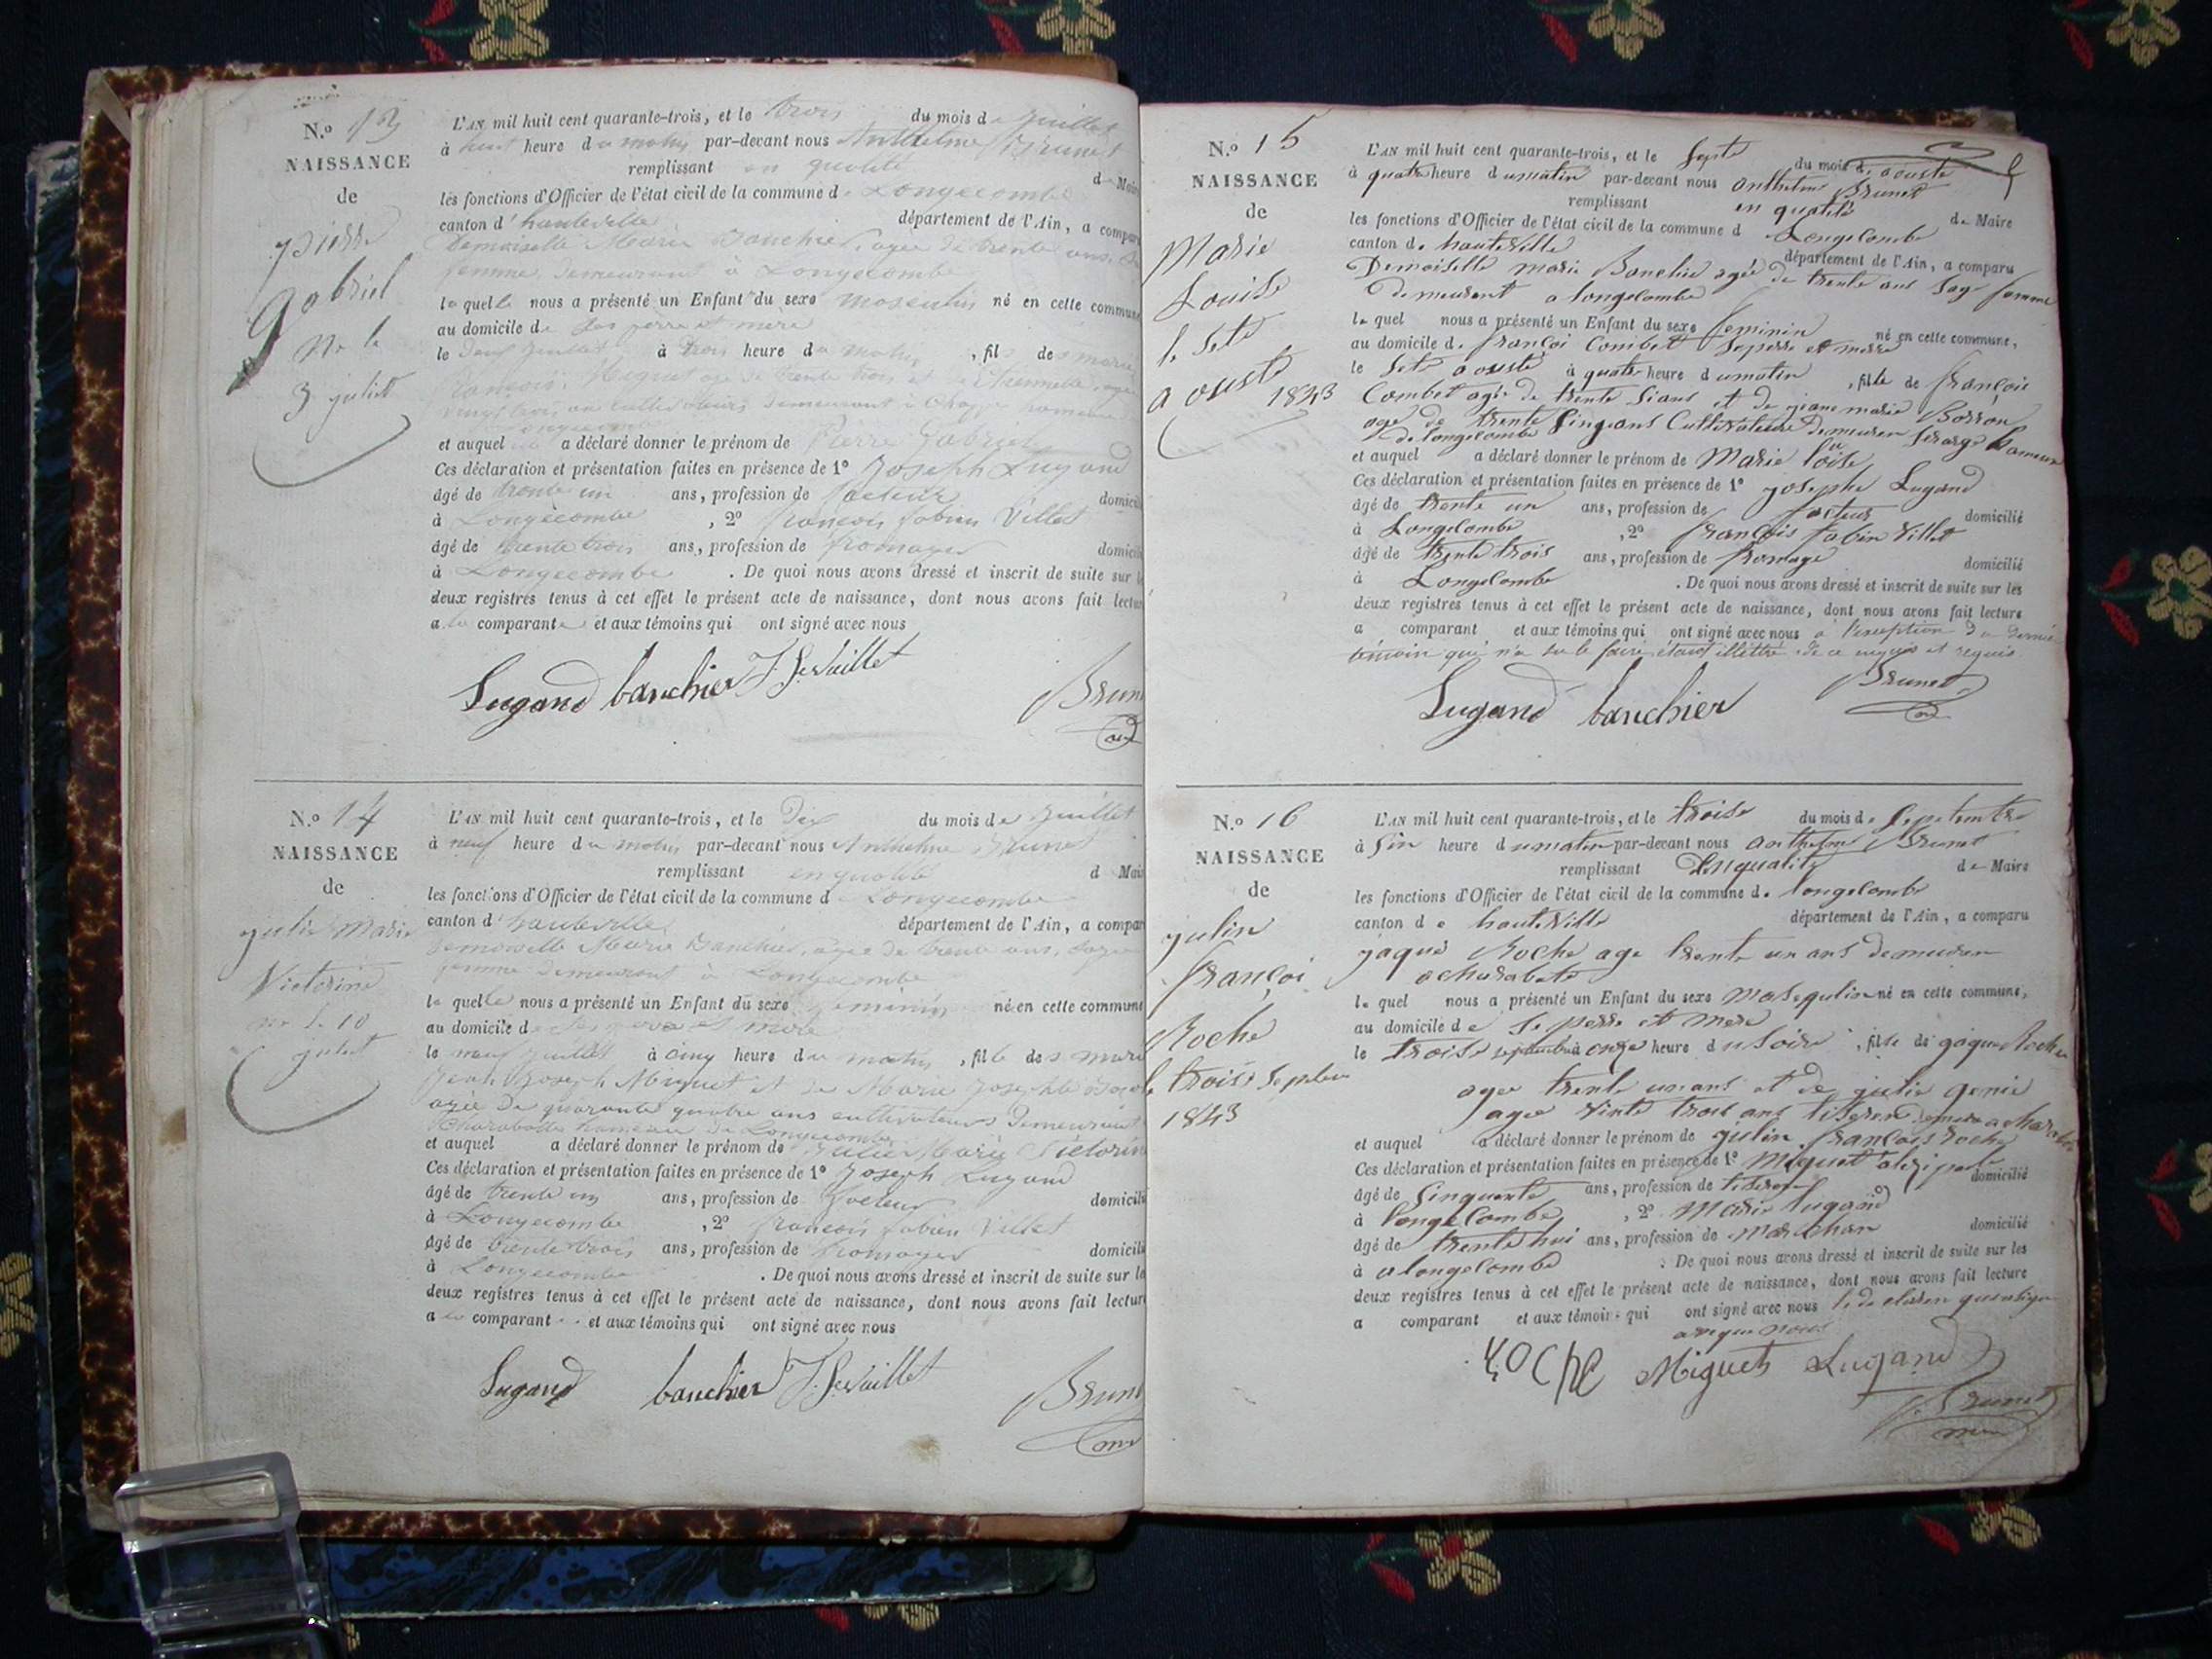 N.o 13
NAISSANCE
de
pierre
gabriel
3 juliet
L'AN mil huit cent quarante-trois, et le trois du mois de juillet
à huit heure du matin par-devant nous Anthelme Brunet
remplissant en qualité de Maire
les fonctions d'Officier de l'état civil de la commune de Longecombe
canton d'hauteville département de l'Ain, a compar
Demoiselle Marie Bauchier, agée de trente ans,
femme, demeurant à Longecombe
laquelle nous a présenté un Enfant du sexe masculin né en cette commune
au domicile de ses perre et mère
le deux juillet à trois heure du matin, fils des marié
françois Miguet age de trente trois et
et auquel a déclaré donner le prénom de Pierre Gabriel
Ces déclaration et présentation faites en présence de 1o Joseph Lugand
âgé de trente un ans, profession de facteur domicil
à Longecombe, 2o françois fabien Villet
âgé de trente trois ans, profession de fromager domicil
à Longecombe. De quoi nous avons dressé et inscrit de suite sur l
deux registres tenus à cet effet le présent acte de naissance, dont nous avons fait lectu
a la comparante et aux témoins qui ont signé avec nous
Lugand bauchier
Brun
N.o 14
NAISSANCE
de
julie marie
Victorine
10
juliet
L'AN mil huit cent quarante-trois, et le Dix du mois de juillet
à neuf heure du matin par-devant nous Anthelme Brunet
remplissant en qualité d Mai
les fonctions d'Officier de l'état civil de la commune d Longecombe
canton d'hauteville département de l'Ain, a compar
demoiselle Marie Bauchier, agée de trente ans, sage
femme demeurant à Longecombe
laquelle nous a présenté un Enfant du sexe feminin né en cette commune
au domicile de ses perre et mère
le neuf juillet à cinq heure du matin, fille des marié
Jean Joseph Miguet et de Marie Josephte
agée de quarante quatre ans cultivateurs demeurant
Charabotte hameau de Longecombe
et auquel a déclaré donner le prénom de Julie Marie Victorin
Ces déclaration et présentation faites en présence de 1o Joseph Lugand
âgé de trente un ans, profession de facteur domicili
à Longecombe, 2o françois fabien Villet
âgé de trente trois ans, profession de fromager domicili
à Longecombe. De quoi nous avons dressé et inscrit de suite sur le
deux registres tenus à cet effet le présent acte de naissance, dont nous avons fait lectur
a la comparant et aux témoins qui ont signé avec nous
Lugand bauchier
Brun
N.o 15
NAISSANCE
de
Marie
Louise
le Sete
aouste
1843
L'AN mil huit cent quarante-trois, et le Septe du mois de aouste
à quatre heure du matin par-devant nous anthelme Brunet
remplissant en qualité de Maire
les fonctions d'Officier de l'état civil de la commune d Longecombe
canton de hauteville département de l'Ain, a comparu
Demoiselle marie Bauchie agée de trente ans Sage femme
demeurent a longecombe
lequel nous a présenté un Enfant du sexe feminin né en cette commune,
au domicile de françoi Combet Seperre et merre
le Sete aouste à quatre heure du matin, fille de françoi
Combet agé de trente Sians et de jeane marie Borron
age de trente Singans Cultivateure demeuren Serarge hameau
de longecombe
et auquel a déclaré donner le prénom de Marie loise
Ces déclaration et présentation faites en présence de 1o josephe Lugand
âgé de trente un ans, profession de facteur domicilié
à Longecombe, 2o françois fabien Villet
âgé de trente trois ans, profession de fromage domicilié
à Longecombe. De quoi nous avons dressé et inscrit de suite sur les
deux registres tenus à cet effet le présent acte de naissance, dont nous avons fait lecture
a comparant et aux témoins qui ont signé avec nous a l'exeption du dernier
témoin qui n'a su le faire étant illettré de ce enquis et requis
Lugand bauchier Brunet
N.o 16
NAISSANCE
de
julin
françoi
Roche
le trois Septem
1843
L'AN mil huit cent quarante-trois, et le troise du mois de Septembre
à Sin heure du matin par-devant nous anthelme Brunet
remplissant Enqualité de Maire
les fonctions d'Officier de l'état civil de la commune de longecombe
canton de hauteville département de l'Ain, a comparu
jaque Roche age trente un ans demeuren
acharabote
lequel nous a présenté un Enfant du sexe masequlin né en cette commune,
au domicile de Se perre et mere
le troise septembre à onze heure du Soire, fils de jaque Roche
agee trente unans et de julie genie
agee vinte trois ans demeuren acharabote
et auquel a déclaré donner le prénom de julin françois roche
Ces déclaration et présentation faites en présence de 1o Miguet
âgé de Sinquante ans, profession de domicilié
à longecombe, 2o Marie lugand
âgé de trente hui ans, profession de marechan domicilié
à a longecombe. De quoi nous avons dressé et inscrit de suite sur les
deux registres tenus à cet effet le présent acte de naissance, dont nous avons fait lecture
a comparant et aux témoins qui ont signé avec nous
aveque nous
roche Miguet Lugand
Brunet